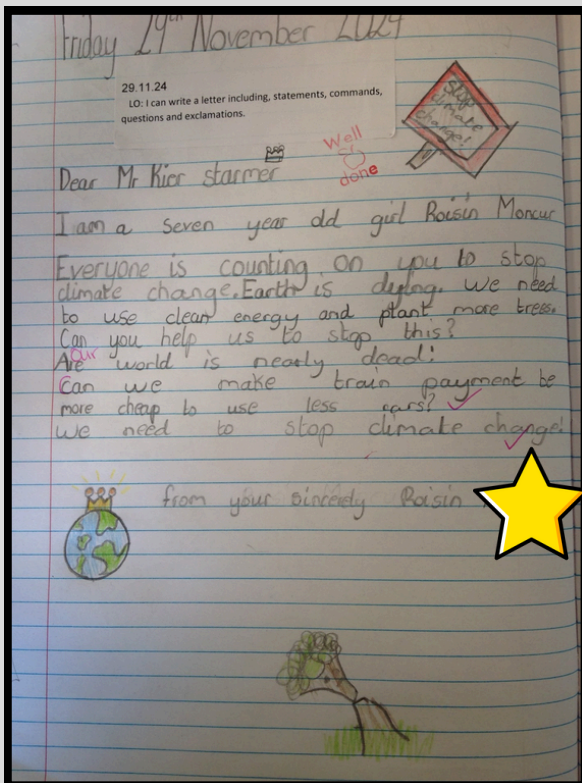 Friday 29th November 2024
29.11.24
LO: I can write a letter including, statements, commands,
questions and exclamations.
Stop
climate
change!
Well
done
Dear Mr Kier starmer
I am a seven year old girl Roisin Moncur
Everyone is counting on you to stop
climate change. Earth is dying. we need
to use clean energy and plant more trees.
Can you help us to stop this?
Are Our world is nearly dead!
Can we make train payment be
more cheap to use less cars?
we need to stop climate change!
from your sincerely Roisin